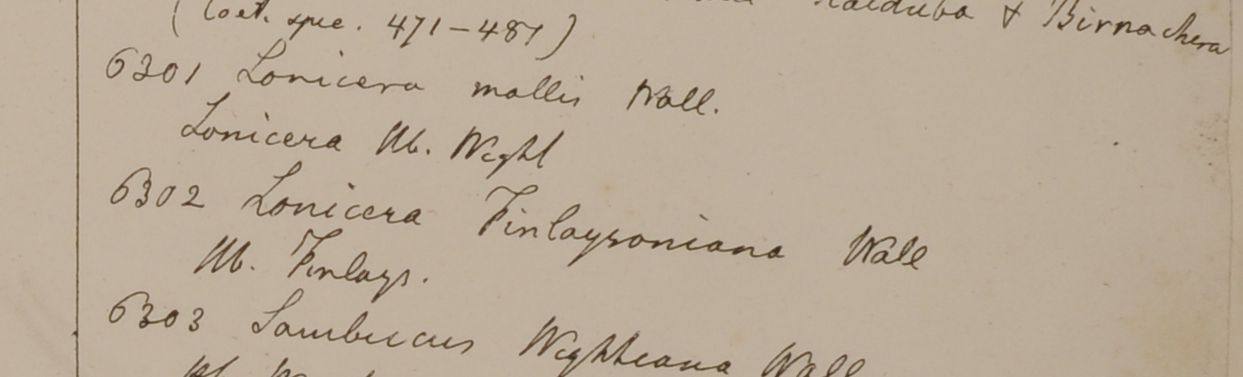 Kaiduba & Birnachera
(Coet. spec. 471–481)
6301 Lonicera mollis Wall.
Lonicera Hb. Wight
6302 Lonicera Finlaysoniana Wall
Hb. Finlays.
6303 Sambucus Wightiana Wall